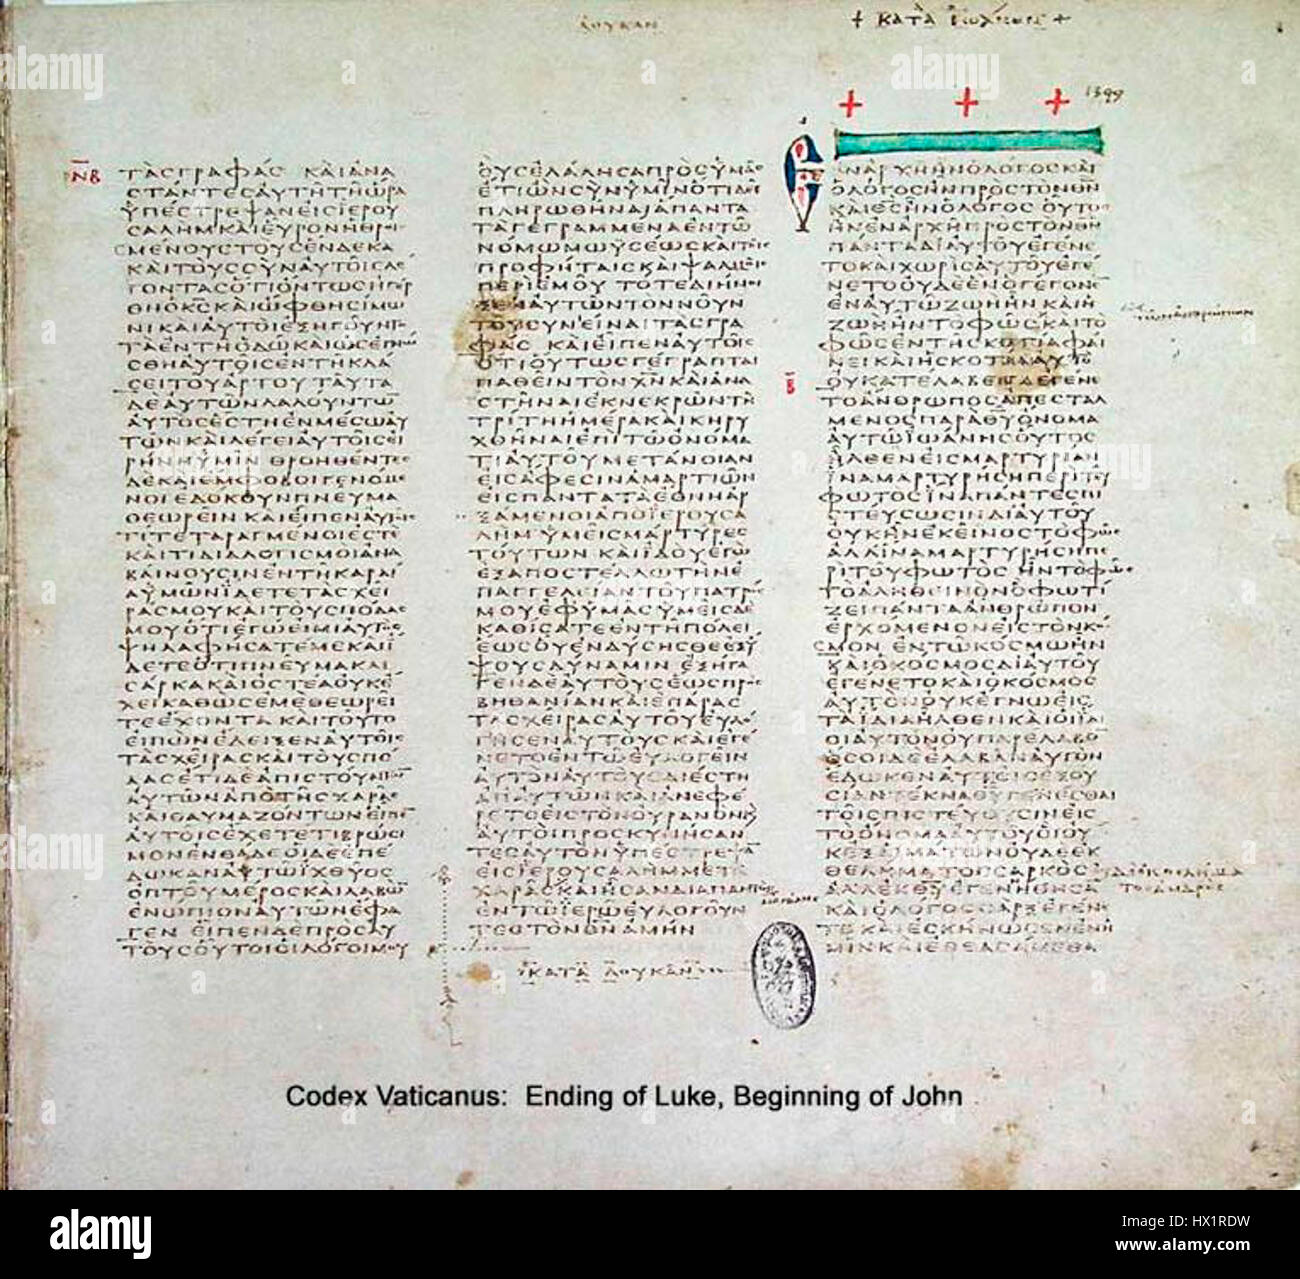 ΛΟΥΚΑΝ
+ ΚΑΤΑ ΙΩΑΝΝΗΝ +
1349
ΝΒ
ΤΑϹΓΡΑΦΑϹ ΚΑΙΑΝΑ
ϹΤΑΝΤΕϹΑΥΤΗΤΗΩΡΑ
ΥΠΕϹΤΡΕΨΑΝΕΙϹΙΕΡΟΥ
ϹΑΛΗΜΚΑΙΕΥΡΟΝΗΘΡΟΙ
ϹΜΕΝΟΥϹΤΟΥϹΕΝΔΕΚΑ
ΚΑΙΤΟΥϹϹΥΝΑΥΤΟΙϹΛΕ
ΓΟΝΤΑϹΟΤΙΟΝΤΩϹΗΓΕΡ
ΘΗΟΚϹΚΑΙΩΦΘΗϹΙΜΩ
ΝΙΚΑΙΑΥΤΟΙΕΞΗΓΟΥΝΤΟ
ΤΑΕΝΤΗΟΔΩΚΑΙΩϹΕΓΝΩ
ϹΘΗΑΥΤΟΙϹΕΝΤΗΚΛΑ
ϹΕΙΤΟΥΑΡΤΟΥΤΑΥΤΑ
ΔΕΑΥΤΩΝΛΑΛΟΥΝΤΩ
ΑΥΤΟϹΕϹΤΗΕΝΜΕϹΩΑΥ
ΤΩΝΚΑΙΛΕΓΕΙΑΥΤΟΙϹΕΙ
ΡΗΝΗΥΜΙΝ ΘΡΟΗΘΕΝΤΕϹ
ΔΕΚΑΙΕΜΦΟΒΟΙΓΕΝΟΜΕ
ΝΟΙΕΔΟΚΟΥΝΠΝΕΥΜΑ
ΘΕΩΡΕΙΝ ΚΑΙΕΙΠΕΝΑΥΤΟΙϹ
ΤΙΤΕΤΑΡΑΓΜΕΝΟΙΕϹΤΕ
ΚΑΙΤΙΔΙΑΛΟΓΙϹΜΟΙΑΝΑ
ΒΑΙΝΟΥϹΙΝΕΝΤΗΚΑΡΔΙ
ΑΥΜΩΝΙΔΕΤΕΤΑϹΧΕΙ
ΡΑϹΜΟΥΚΑΙΤΟΥϹΠΟΔΑϹ
ΜΟΥΟΤΙΕΓΩΕΙΜΙΑΥΤΟϹ
ΨΗΛΑΦΗϹΑΤΕΜΕΚΑΙΙ
ΔΕΤΕΟΤΙΠΝΕΥΜΑΚΑΙ
ϹΑΡΚΑΚΑΙΟϹΤΕΑΟΥΚΕ
ΧΕΙΚΑΘΩϹΕΜΕΘΕΩΡΕΙ
ΤΕΕΧΟΝΤΑ ΚΑΙΤΟΥΤΟ
ΕΙΠΩΝΕΔΕΙΞΕΝΑΥΤΟΙϹ
ΤΑϹΧΕΙΡΑϹΚΑΙΤΟΥϹΠΟ
ΔΑϹΕΤΙΔΕΑΠΙϹΤΟΥΝΤΩΝ
ΑΥΤΩΝΑΠΟΤΗϹΧΑΡΑϹ
ΚΑΙΘΑΥΜΑΖΟΝΤΩΝΕΙΠΕ
ΑΥΤΟΙϹΕΧΕΤΕΤΙΒΡΩϹΙ
ΜΟΝΕΝΘΑΔΕΟΙΔΕΕΠΕ
ΔΩΚΑΝΑΥΤΩΙΧΘΥΟϹ
ΟΠΤΟΥΜΕΡΟϹΚΑΙΛΑΒΩ
ΕΝΩΠΙΟΝΑΥΤΩΝΕΦΑ
ΓΕΝ ΕΙΠΕΝΔΕΠΡΟϹΑΥ
ΤΟΥϹΟΥΤΟΙΟΙΛΟΓΟΙΜΟΥ
ΟΥϹΕΛΑΛΗϹΑΠΡΟϹΥΜΑϹ
ΕΤΙΩΝϹΥΝΥΜΙΝΟΤΙΔΕΙ
ΠΛΗΡΩΘΗΝΑΙΑΠΑΝΤΑ
ΤΑΓΕΓΡΑΜΜΕΝΑΕΝΤΩ
ΝΟΜΩΜΩΥϹΕΩϹΚΑΙΤΟΙϹ
ΠΡΟΦΗΤΑΙϹΚΑΙΨΑΛΜΟΙϹ
ΠΕΡΙΕΜΟΥ ΤΟΤΕΔΙΗΝΟΙ
ΞΕΝΑΥΤΩΝΤΟΝΝΟΥΝ
ΤΟΥϹΥΝΕΙΝΑΙΤΑϹΓΡΑ
ΦΑϹ ΚΑΙΕΙΠΕΝΑΥΤΟΙϹ
ΟΤΙΟΥΤΩϹΓΕΓΡΑΠΤΑΙ
ΠΑΘΕΙΝΤΟΝΧΝΚΑΙΑΝΑ
ϹΤΗΝΑΙΕΚΝΕΚΡΩΝΤΗ
ΤΡΙΤΗΗΜΕΡΑΚΑΙΚΗΡΥ
ΧΘΗΝΑΙΕΠΙΤΩΟΝΟΜΑ
ΤΙΑΥΤΟΥΜΕΤΑΝΟΙΑΝ
ΕΙϹΑΦΕϹΙΝΑΜΑΡΤΙΩΝ
ΕΙϹΠΑΝΤΑΤΑΕΘΝΗΑΡ
ΞΑΜΕΝΟΙΑΠΟΙΕΡΟΥϹΑ
ΛΗΜ ΥΜΕΙϹΜΑΡΤΥΡΕϹ
ΤΟΥΤΩΝ ΚΑΙΙΔΟΥΕΓΩ
ΕΞΑΠΟϹΤΕΛΛΩΤΗΝΕ
ΠΑΓΓΕΛΕΙΑΝΤΟΥΠΑΤΡΟϹ
ΜΟΥΕΦΥΜΑϹΥΜΕΙϹΔΕ
ΚΑΘΙϹΑΤΕΕΝΤΗΠΟΛΕΙ
ΕΩϹΟΥΕΝΔΥϹΗϹΘΕΕΞΥ
ΨΟΥϹΔΥΝΑΜΙΝ ΕΞΗΓΑ
ΓΕΝΔΕΑΥΤΟΥϹΕΩϹΠΡΟϹ
ΒΗΘΑΝΙΑΝΚΑΙΕΠΑΡΑϹ
ΤΑϹΧΕΙΡΑϹΑΥΤΟΥΕΥΛΟ
ΓΗϹΕΝΑΥΤΟΥϹΚΑΙΕΓΕ
ΝΕΤΟΕΝΤΩΕΥΛΟΓΕΙΝ
ΑΥΤΟΝΑΥΤΟΥϹΔΙΕϹΤΗ
ΑΠΑΥΤΩΝΚΑΙΑΝΕΦΕ
ΡΕΤΟΕΙϹΤΟΝΟΥΡΑΝΟΝΚ
ΑΥΤΟΙΠΡΟϹΚΥΝΗϹΑΝ
ΤΕϹΑΥΤΟΝΥΠΕϹΤΡΕΨΑ
ΕΙϹΙΕΡΟΥϹΑΛΗΜΜΕΤΑ
ΧΑΡΑϹΚΑΙΗϹΑΝΔΙΑΠΑΝΤΟϹ
ΕΝΤΩΙΕΡΩΕΥΛΟΓΟΥΝ
ΤΕϹΤΟΝΘΝΑΜΗΝ
ΚΑΤΑ ΛΟΥΚΑΝ
ΕΝΑΡΧΗΗΝΟΛΟΓΟϹΚΑΙ
ΟΛΟΓΟϹΗΝΠΡΟϹΤΟΝΘΝ
ΚΑΙΘϹΗΝΟΛΟΓΟϹ ΟΥΤΟϹ
ΗΝΕΝΑΡΧΗΠΡΟϹΤΟΝΘΝ
ΠΑΝΤΑΔΙΑΥΤΟΥΕΓΕΝΕ
ΤΟΚΑΙΧΩΡΙϹΑΥΤΟΥΕΓΕ
ΝΕΤΟΟΥΔΕΕΝΟΓΕΓΟΝΕ
ΕΝΑΥΤΩΖΩΗΗΝ ΚΑΙΗ
ΖΩΗΗΝΤΟΦΩϹ ΚΑΙΤΟ
ΦΩϹΕΝΤΗϹΚΟΤΙΑΦΑΙ
ΝΕΙ ΚΑΙΗϹΚΟΤΙΑΑΥΤΟ
Β
ΟΥΚΑΤΕΛΑΒΕΝ ΕΓΕΝΕ
ΤΟΑΝΘΡΩΠΟϹΑΠΕϹΤΑΛ
ΜΕΝΟϹΠΑΡΑΘΥΟΝΟΜΑ
ΑΥΤΩΙΩΑΝΗϹΟΥΤΟϹ
ΗΛΘΕΝΕΙϹΜΑΡΤΥΡΙΑΝ
ΙΝΑΜΑΡΤΥΡΗϹΗΠΕΡΙΤΟΥ
ΦΩΤΟϹΙΝΑΠΑΝΤΕϹΠΙ
ϹΤΕΥϹΩϹΙΝΔΙΑΥΤΟΥ
ΟΥΚΗΝΕΚΕΙΝΟϹΤΟΦΩϹ
ΑΛΛΙΝΑΜΑΡΤΥΡΗϹΗΠΕ
ΡΙΤΟΥΦΩΤΟϹ ΗΝΤΟΦΩϹ
ΤΟΑΛΗΘΕΙΝΟΝΟΦΩΤΙ
ΖΕΙΠΑΝΤΑΑΝΘΡΩΠΟΝ
ΕΡΧΟΜΕΝΟΝΕΙϹΤΟΝΚΟ
ϹΜΟΝ ΕΝΤΩΚΟϹΜΩΗΝ
ΚΑΙΟΚΟϹΜΟϹΔΙΑΥΤΟΥ
ΕΓΕΝΕΤΟΚΑΙΟΚΟϹΜΟϹ
ΑΥΤΟΝΟΥΚΕΓΝΩΕΙϹ
ΤΑΙΔΙΑΗΛΘΕΝΚΑΙΟΙΙΔΙ
ΟΙΑΥΤΟΝΟΥΠΑΡΕΛΑΒΟ
ΟϹΟΙΔΕΕΛΑΒΑΝΑΥΤΟΝ
ΕΔΩΚΕΝΑΥΤΟΙϹΕΞΟΥ
ϹΙΑΝΤΕΚΝΑΘΥΓΕΝΕϹΘΑΙ
ΤΟΙϹΠΙϹΤΕΥΟΥϹΙΝΕΙϹ
ΤΟΟΝΟΜΑΑΥΤΟΥΟΙΟΥ
ΚΕΞΑΙΜΑΤΩΝΟΥΔΕΕΚ
ΘΕΛΗΜΑΤΟϹϹΑΡΚΟϹ
ΑΛΛΕΚΘΥΕΓΕΝΗΘΗϹΑ
ΚΑΙΟΛΟΓΟϹϹΑΡΞΕΓΕΝΕ
ΤΟΚΑΙΕϹΚΗΝΩϹΕΝΕΝΗ
ΜΙΝΚΑΙΕΘΕΑϹΑΜΕΘΑ
ΤΩΝΑΝΘΡΩΠΩΝ
Codex Vaticanus: Ending of Luke, Beginning of John
alamy
HX1RDW
www.alamy.com